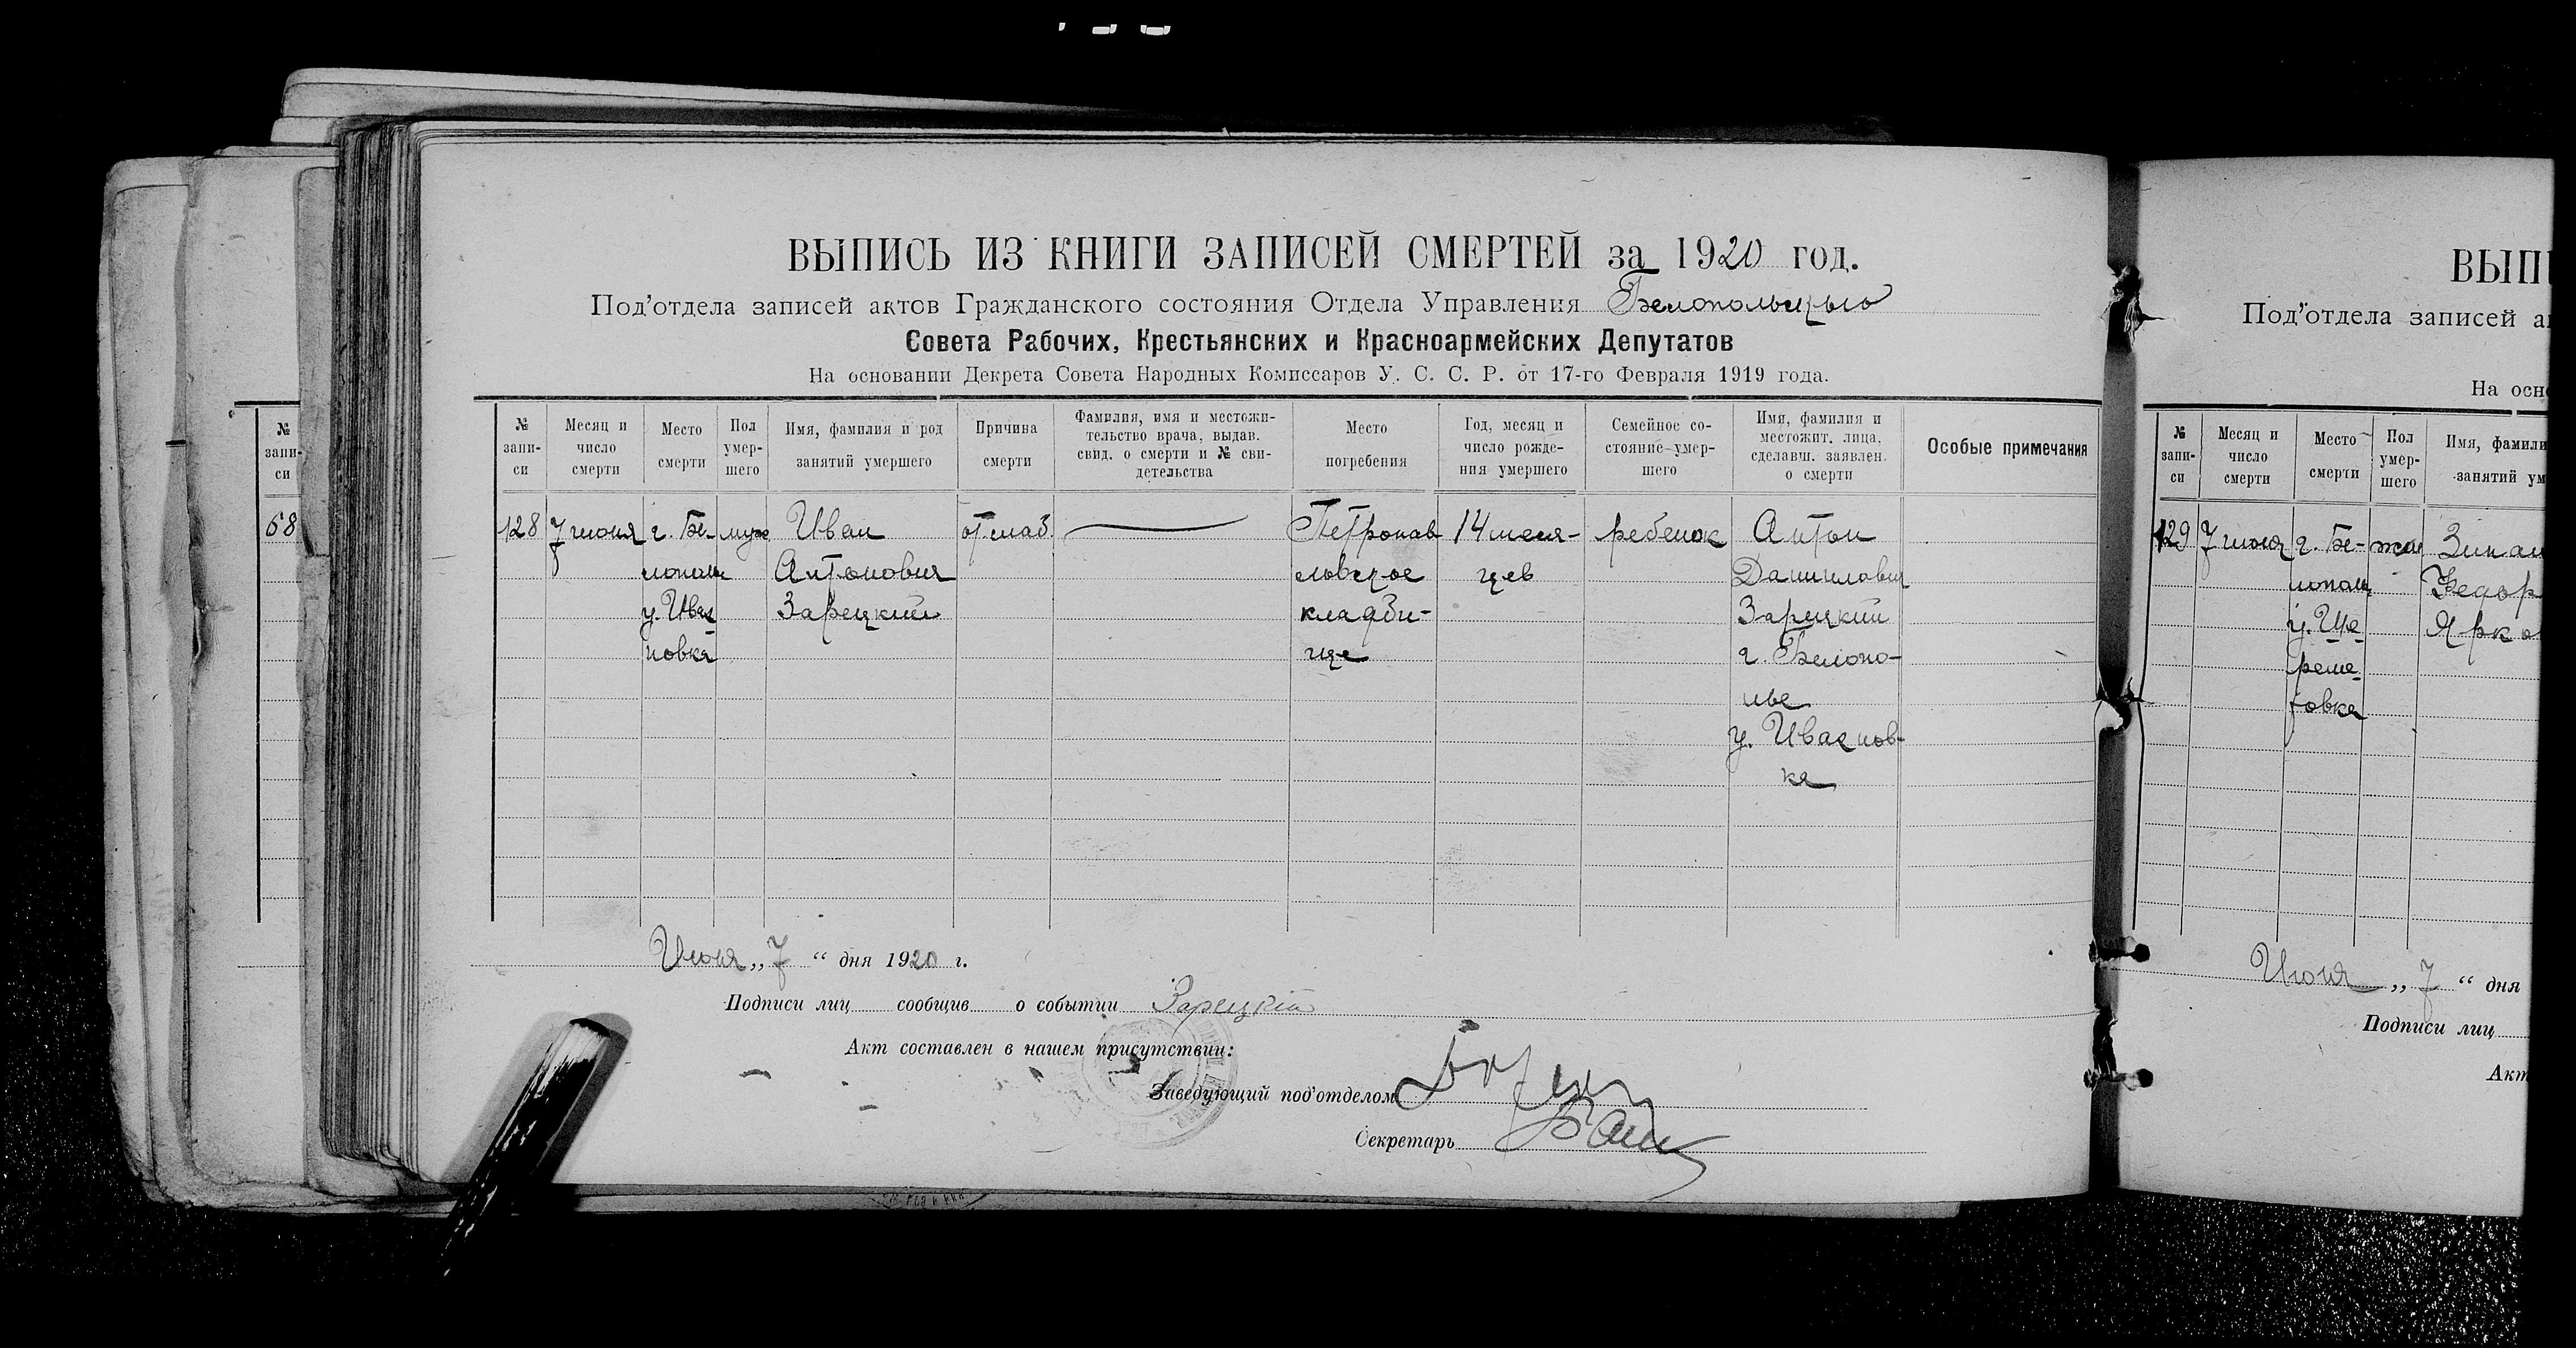 ВЫПИСЬ ИЗ КНИГИ ЗАПИСЕЙ СМЕРТЕЙ за 1920 год.
Под'отдела записей актов Гражданского состояния Отдела Управления Белопольского
Совета Рабочих, Крестьянских и Красноармейских Депутатов
На основании Декрета Совета Народных Комиссаров У. С. С. Р. от 17-го Февраля 1919 года.
№ запи-си
Месяц и число смерти
Место смерти
Пол умер-шего
Имя, фамилия и род занятий умершего
Причина смерти
Фамилия, имя и местожи-тельство врача, выдав. свид. о смерти и № сви-детельства
Место погребения
Год, месяц и число рожде-ния умершего
Семейное со-стояние умер-шего
Имя, фамилия и местожит. лица, сделавш. заявлен. о смерти
Особые примечания
128 7 июня г. Бе- муж Иван от слаб. Петропав 14 меся- ребенок Антон
лополье Антонович ловское цев Данилович
у. Ива Зарецкий кладби- Зарецкий
новка ще г. Белопо-
лье
у. Иванов-
ка
Июня „ 7 “ дня 1920 г.
Подписи лиц сообщив о событии Зарецкій
Акт составлен в нашем присутствии:
Заведующий под'отделом
Секретарь
№ запи-си
68
ВЫП
Под'отдела записей а
На осн
№ запи-си
Месяц и число смерти
Место смерти
Пол умер-шего
Имя, фамили
занятий ум
129 7 июня г. Бе- жен Зинаи
лополь Федор
у. Ше Ярко
реме-
товка
Июня „ 7 “ дня
Подписи лиц
Акт